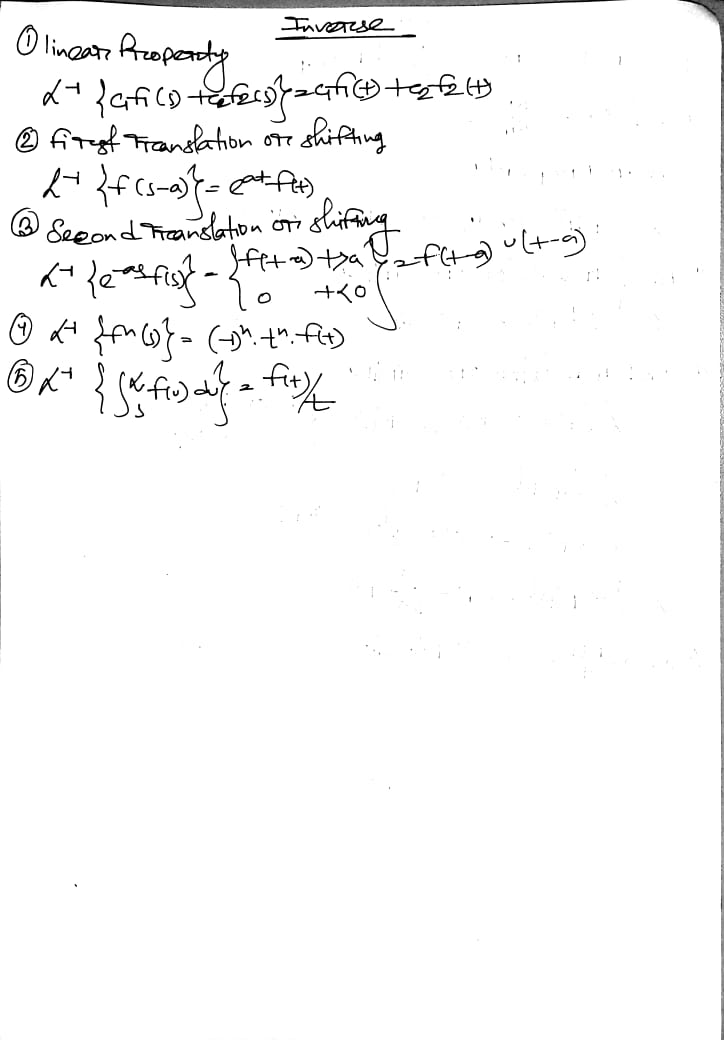 Inverse
① linear Property
L⁻¹ {c₁f₁(s) + c₂f₂(s)} = c₁f₁(t) + c₂f₂(t)
② first Translation or shifting
L⁻¹ {f(s-a)} = e^{at} f(t)
③ Second Translation or shifting
L⁻¹ {e^{-as} f(s)} = { f(t-a) t>a } = f(t-a) u(t-a)
0 t<0
④ L⁻¹ {fⁿ(s)} = (-1)ⁿ. tⁿ. f(t)
⑤ L⁻¹ {∫ₛ^∝ f(u) du} = f(t)/t